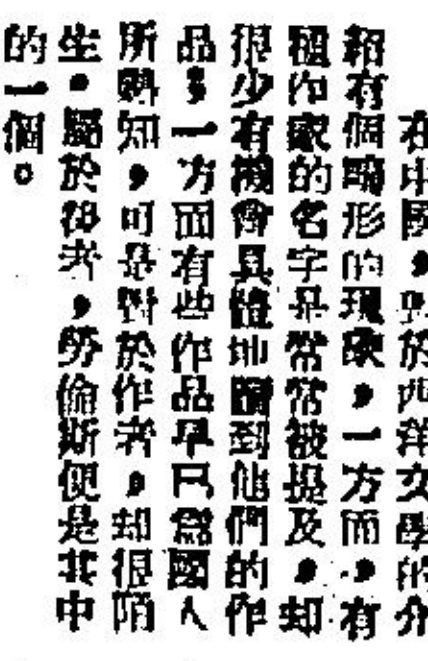 在中國，對於西洋文學的介
紹有個畸形的現象，一方面，有
種作家的名字是常常被提及，却
很少有機會具體地讀到他們的作
品，一方面有些作品早已爲國人
所熟知，可是對於作者，却很陌
生。屬於後者，勞倫斯便是其中
的一個。